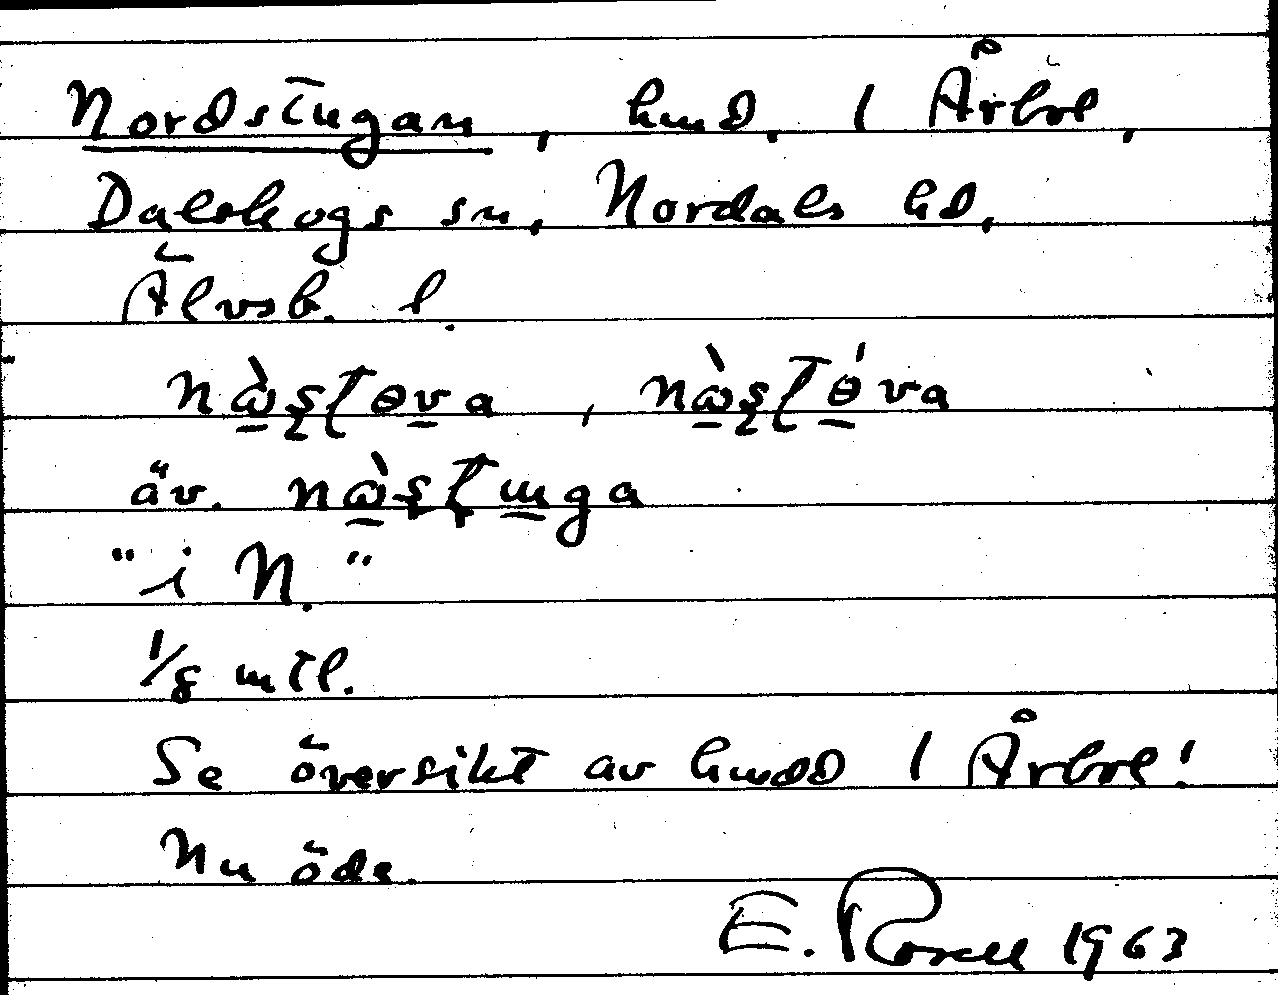 Nordstugan, hmd. 1 Årbol,
Dalskogs sn, Nordals hd,
Älvsb. l.
nὼʂt̪ɵva, nὼʂt̪ɵ́va
äv. nὼʂt̪ɯga
"i N."
1/8 mtl.
Se översikt av hmdd 1 Årbol!
Nu öde.
E. Rosell 1963